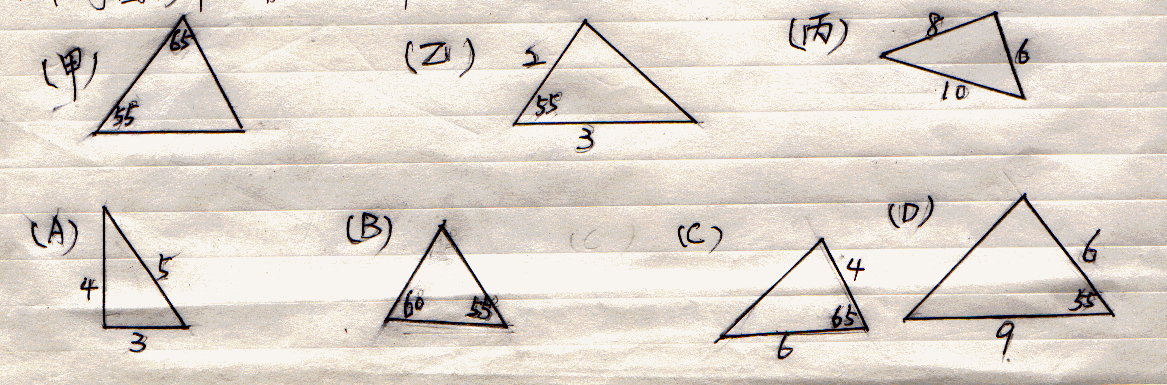 (甲) 65 55°
(乙) 2 55° 3
(丙) 8 6 10
(A) 4 5 3
(B) 60 55°
( C )
(C) 4 65 6
(D) 6 55 9